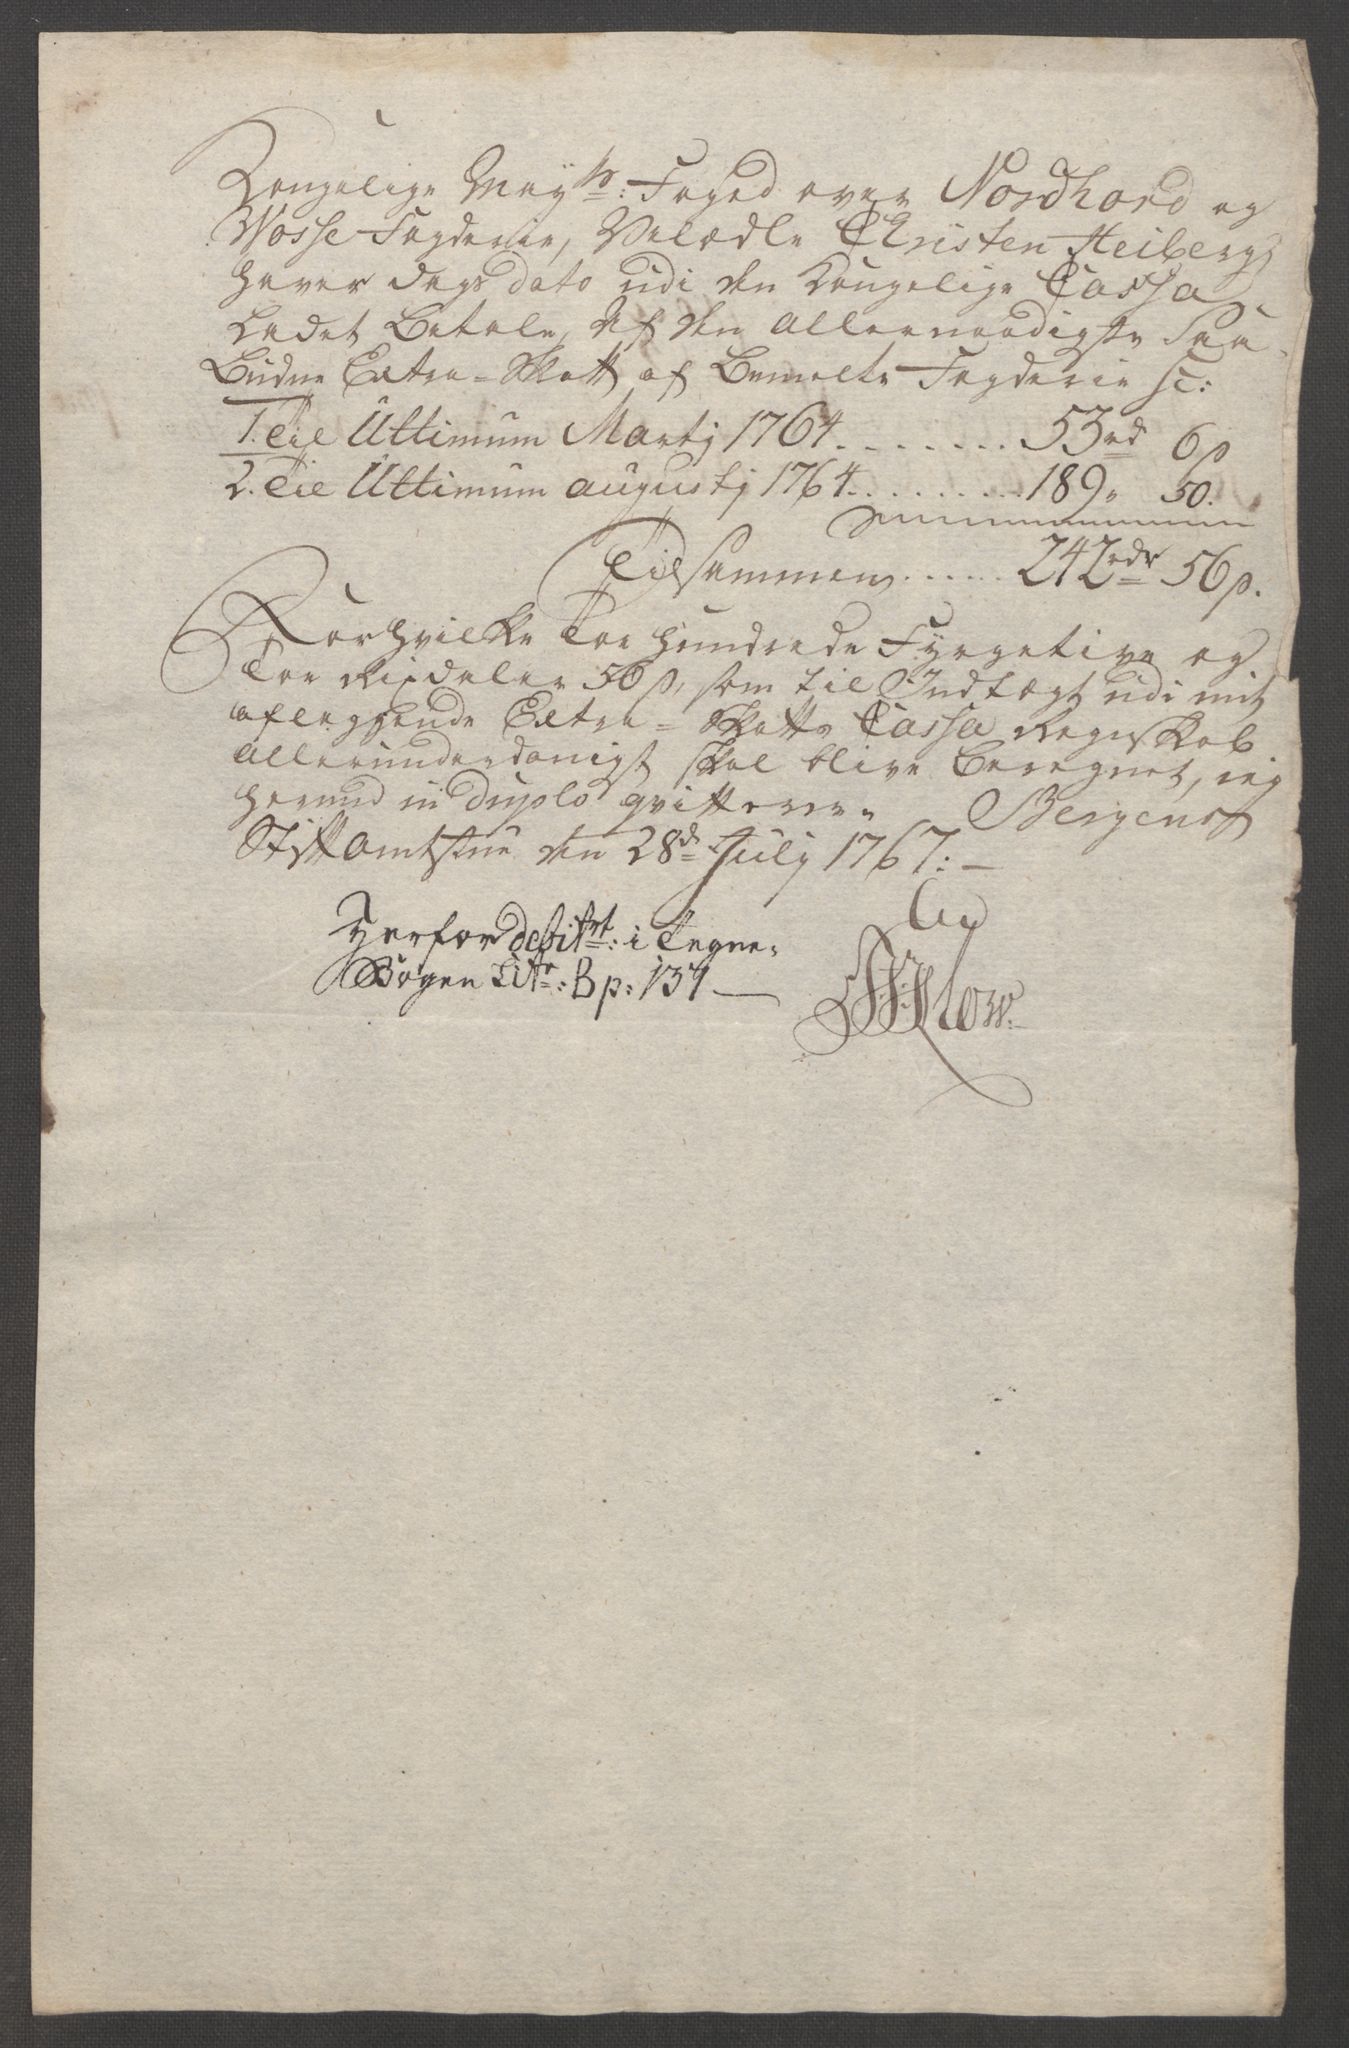 Kongelige May:ts: Foged over Nordhord og
Wosse Fogderie, Velædle Christen Heiberg,
haver dags dato udi den Kongelige Cassa
ladet Betale, af den allernaadigste Paa-
Budne Extra-Skatt af Bemelte Fogderie sc:
1. Til Ultimum Martij 1764 ........ 53rd 6s
2. Til Ultimum augustij 1764 ......... 189" 50.
Tilsammen ...... 242rdr 56s.
For hvilke Toe hundrede Fyrgetive og
Toe Rixdaler 56s, som til Indtægt udi mit
aflæggende Extra-Skatts Cassa Regnskab
allerunderdanigst skal blive Beregnet, ieg
herved in duplo qvitterer. Bergens
Stiftamtstue den 28d July 1767:
Herfor debitrt: i Tegne-
Bogen Litr: B p: 134